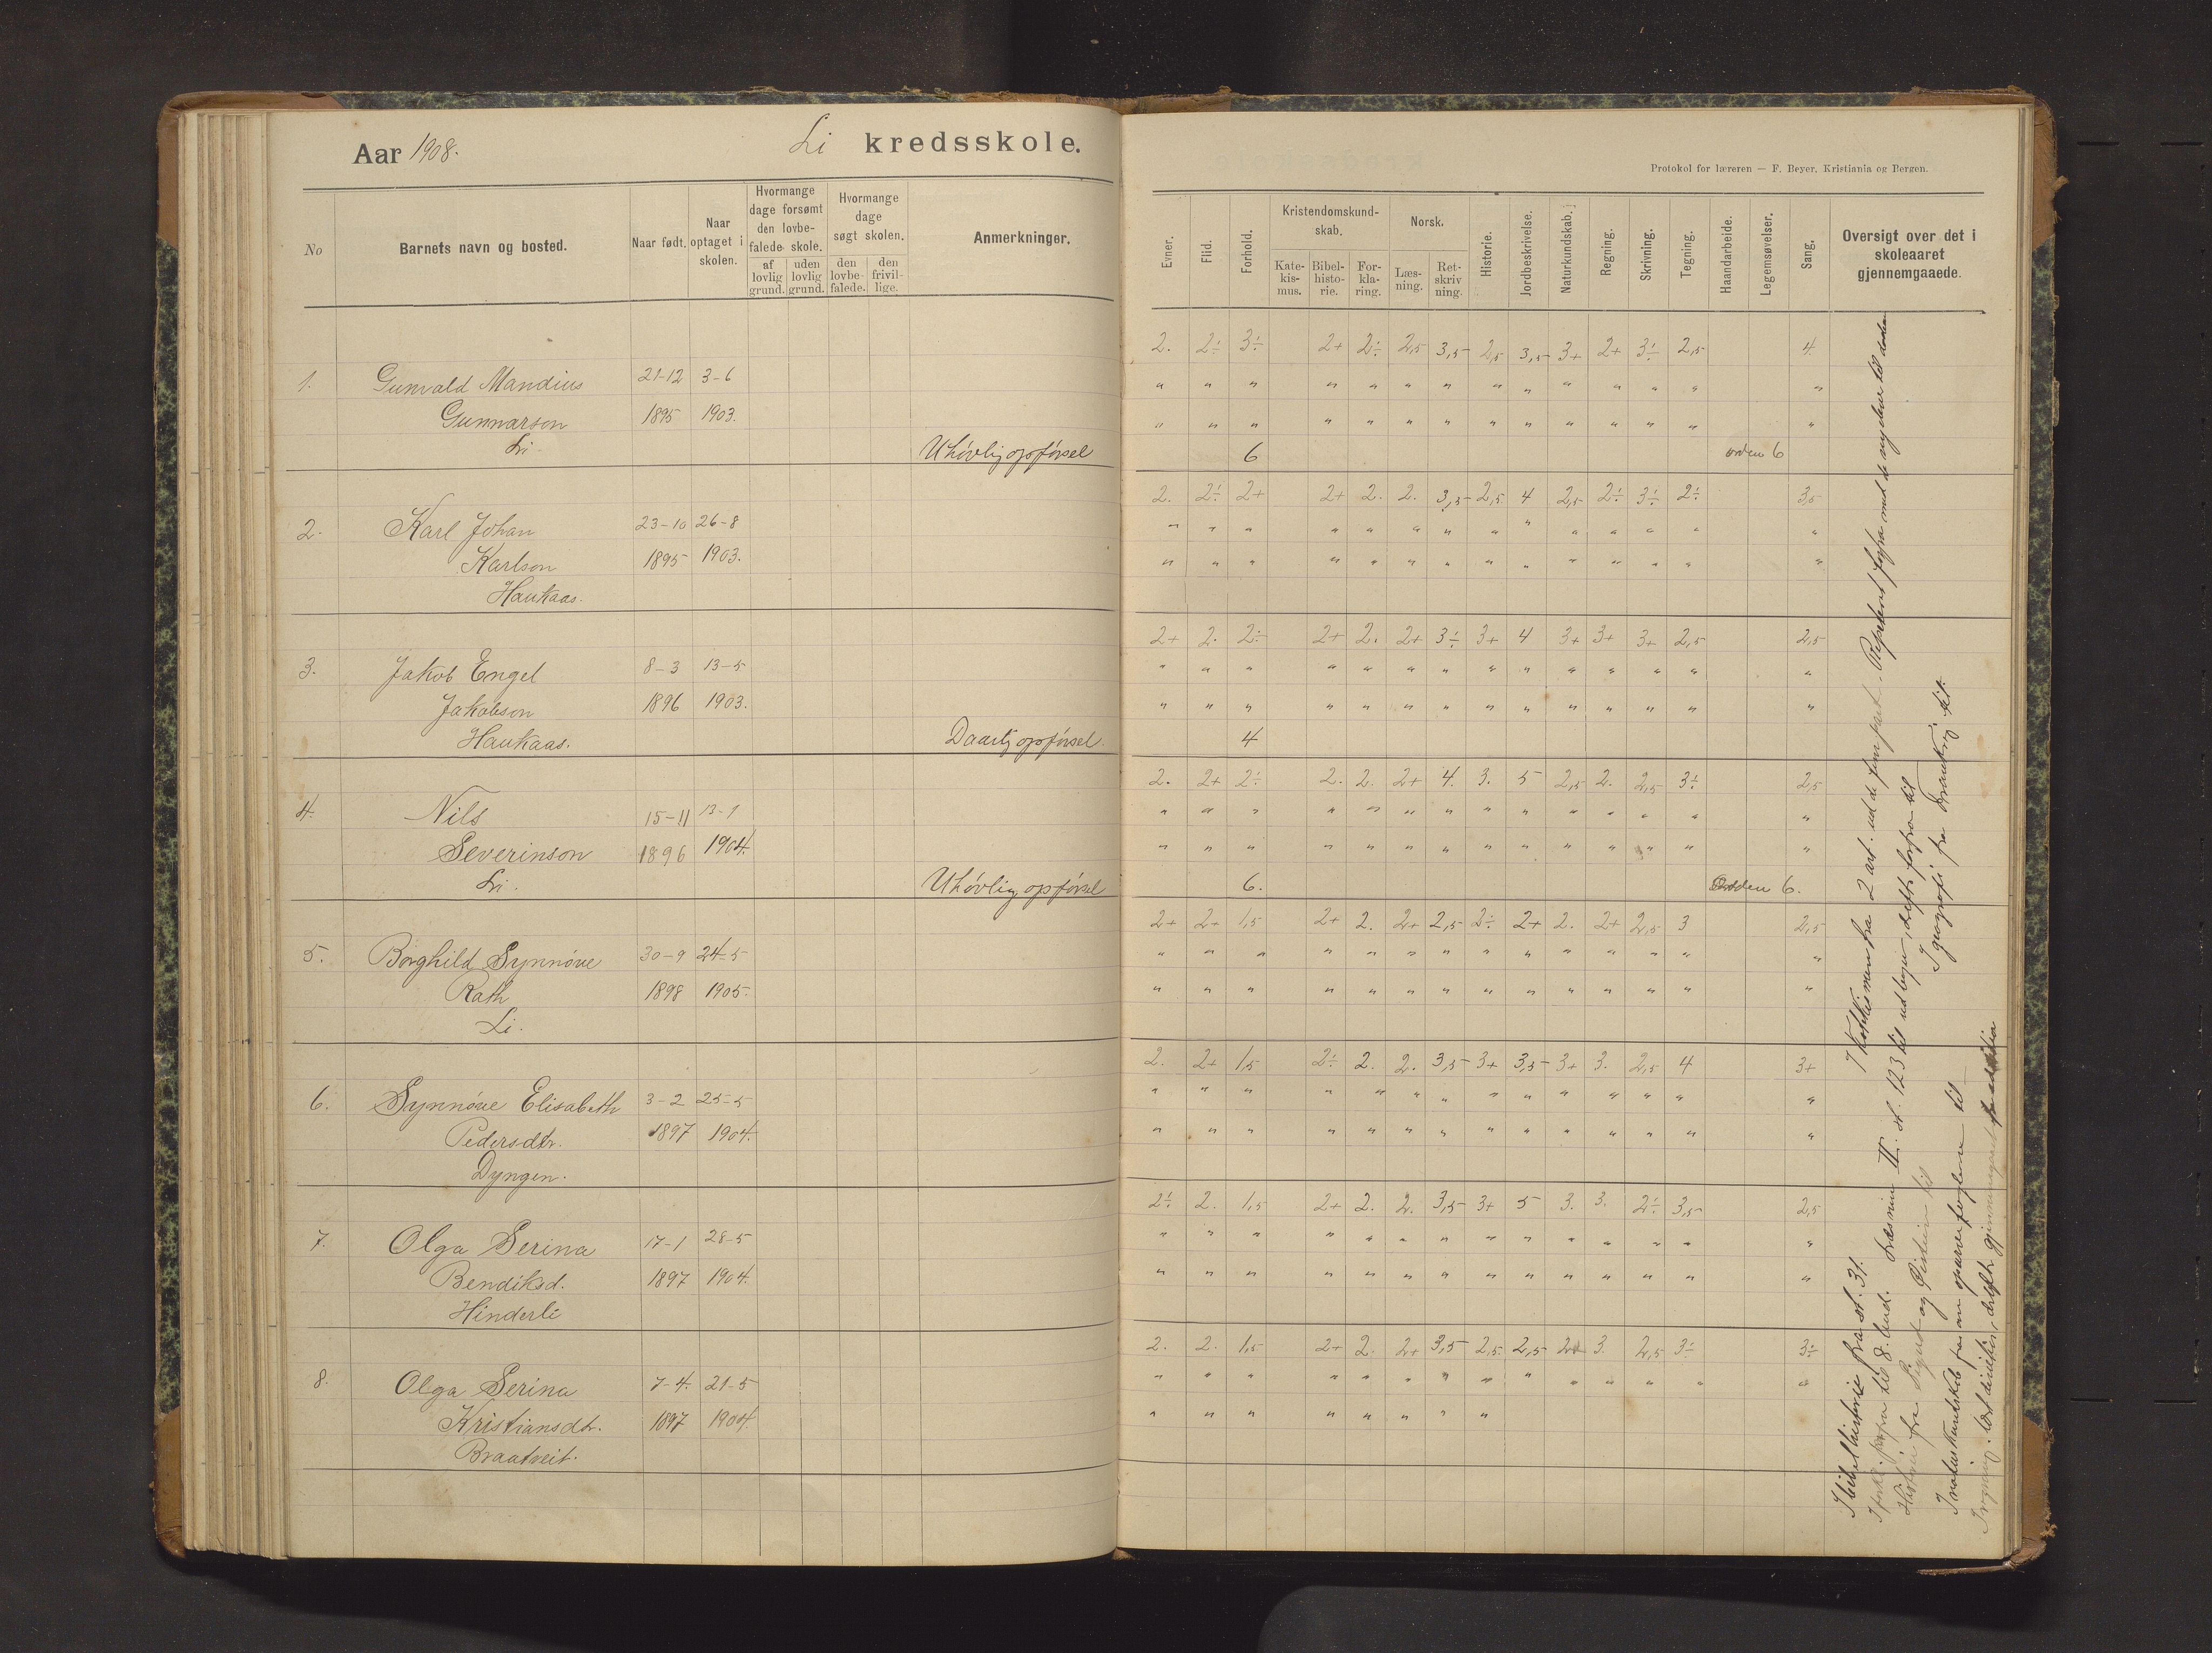 Aar 1908.
Li kredsskole.
No
Barnets navn og bosted.
Naar født.
Naar optaget i skolen.
Hvormange dage forsømt den lovbefalede skole.
af lovlig grund.
uden lovlig grund.
Hvormange dage søgt skolen.
den lovbefalede.
den frivillige.
Anmerkninger.
1. Gunvald Mandius 21-12 3-6
Gunnarson 1895 1903.
Li. Uhövlig opförsel
2. Karl Johan 23-10 26-8
Karlson 1895 1903.
Haukaas.
3. Jakob Engel 8-3 13-5
Jakobson 1896 1903.
Haukaas. Daarlig opförsel.
4. Nils 15-11 13-9
Severinson 1896 1904.
Li. Uhövlig opförsel
5. Borghild Synnöve 30-9 24-5
Rath 1898 1905.
Li.
6. Synnöve Elisabeth 3-2 25-5
Pedersdtr. 1897 1904.
Dyngen.
7. Olga Serina 17-1 28-5
Bendiksd. 1897 1904.
Hinderli
8. Olga Serina 7-4. 21-5
Kristiansdtr. 1897 1904.
Braatveit.
Protokol for læreren — F. Beyer, Kristiania og Bergen.
Evner.
Flid.
Forhold.
Kristendomskundskab.
Katekismus.
Bibelhistorie.
Forklaring.
Norsk.
Læsning.
Retskrivning.
Historie.
Jordbeskrivelse.
Naturkundskab.
Regning.
Skrivning.
Tegning.
Haandarbeide.
Legemsøvelser.
Sang.
Oversigt over det i skoleaaret gjennemgaaede.
2. 2÷ 3÷ 2+ 2÷ 2,5 3,5 2,5 3,5 3+ 2+ 3÷ 2,5 4.
" " " " " " " " " " " " " "
" " " " " " " " " " " " " "
6 orden 6
2. 2÷ 2+ 2+ 2. 2. 3,5 2,5 4 2,5 2÷ 3÷ 2÷ 3,5
" " " " " " " " " " " " " "
" " " " " " " " " " " " " "
2+ 2. 2÷ 2+ 2. 2+ 3÷ 3+ 4 3+ 3+ 3+ 2,5 2,5
" " " " " " " " " " " " " "
" " " " " " " " " " " " " "
4
2. 2+ 2÷ 2. 2. 2+ 4. 3. 5 2,5 2. 2,5 3÷ 2,5
" " " " " " " " " " " " " "
" " " " " " " " " " " " " "
6. Orden 6.
2+ 2+ 1,5 2+ 2. 2+ 2,5 2÷ 2+ 2. 2+ 2,5 3 2,5
" " " " " " " " " " " " " "
" " " " " " " " " " " " " "
2. 2+ 1,5 2÷ 2. 2. 3,5 3+ 3,5 3+ 3. 2,5 4 3+
" " " " " " " " " " " " " "
" " " " " " " " " " " " " "
2÷ 2. 1,5 2+ 2. 2. 3,5 3+ 5 3. 3. 2÷ 3,5 2,5
" " " " " " " " " " " " " "
" " " " " " " " " " " " " "
2. 2. 1,5 2+ 2. 2+ 3,5 2,5 2,5 2+ 3. 2,5 3÷ 3÷
" " " " " " " " " " " " " "
" " " " " " " "
I bibelhistorie fra st. 31. I Katkismen fra 2 art. ud de fem part. Repetert forfra med de nylær til
I forkl. forfra til 8. bud. Læsning II. st. 123 til
Historie fra og til
I geografi fra Frankrig til.
I naturkundskab fra til
I regning